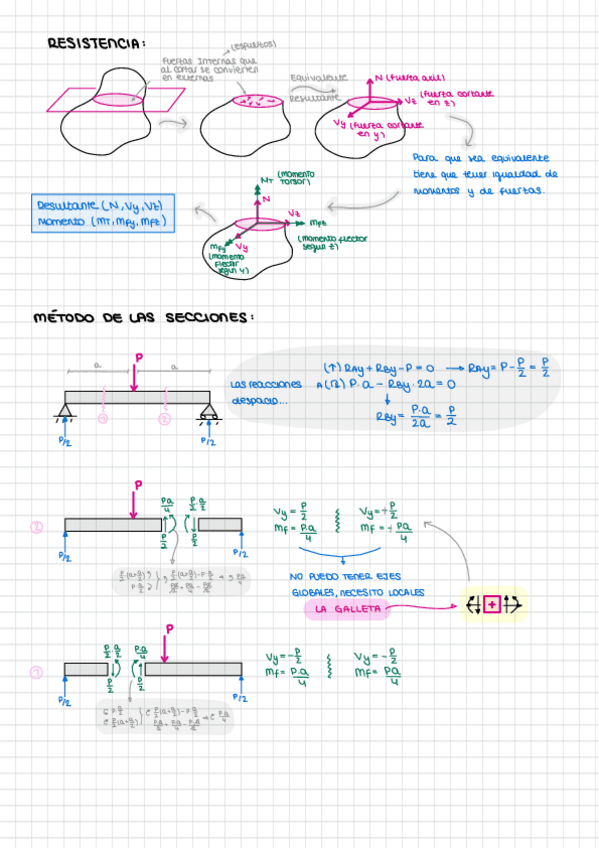 RESISTENCIA:
(esfuerzos)
Fuerzas internas que
al cortar se convierten
en externas
Equivalente
Resultante
N (fuerza axil)
Vz (fuerza cortante
en z)
Vy (fuerza cortante
en y)
Para que sea equivalente
tiene que tener igualdad de
momentos y de fuerzas.
Resultante (N, Vy, Vz)
Momento (MT, Mfy, Mfz)
MT (momento
torsor)
N
Vz
Mfz
(momento flector
según z)
Mfy
Vy
(momento
flector
según y)
MÉTODO DE LAS SECCIONES:
a
a
P
1
2
P/2
P/2
Las reacciones
despacio...
(↑) RAy + RBy - P = 0 → RAy = P - P/2 = P/2
A (↻) P·a - RBy·2a = 0
RBy = P·a/2a = P/2
2
P
P/2
P/2
P/2
P/2
Vy = P/2
Mf = P·a/4
Vy = + P/2
Mf = + P·a/4
NO PUEDO TENER EJES
GLOBALES, NECESITO LOCALES
LA GALLETA
+
1
P
P/2
P/2
P/2
P/2
Vy = - P/2
Mf = P·a/4
Vy = - P/2
Mf = P·a/4